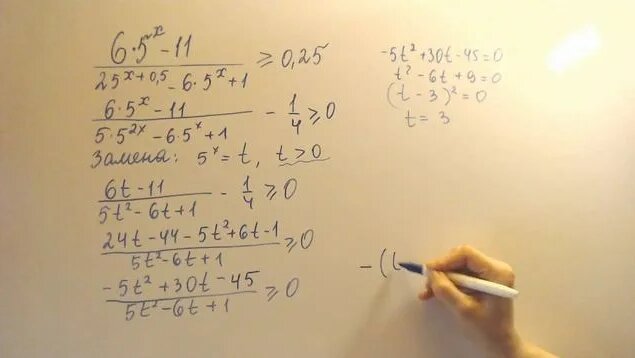 (6·5^x − 11)/(25^(x+0,5) − 6·5^x + 1) ≥ 0,25
(6·5^x − 11)/(5·5^(2x) − 6·5^x + 1) − 1/4 ≥ 0
Замена: 5^x = t, t > 0
(6t − 11)/(5t² − 6t + 1) − 1/4 ≥ 0
(24t − 44 − 5t² + 6t − 1)/(5t² − 6t + 1) ≥ 0
(−5t² + 30t − 45)/(5t² − 6t + 1) ≥ 0
−5t² + 30t − 45 = 0
t² − 6t + 9 = 0
(t − 3)² = 0
t = 3
−(t